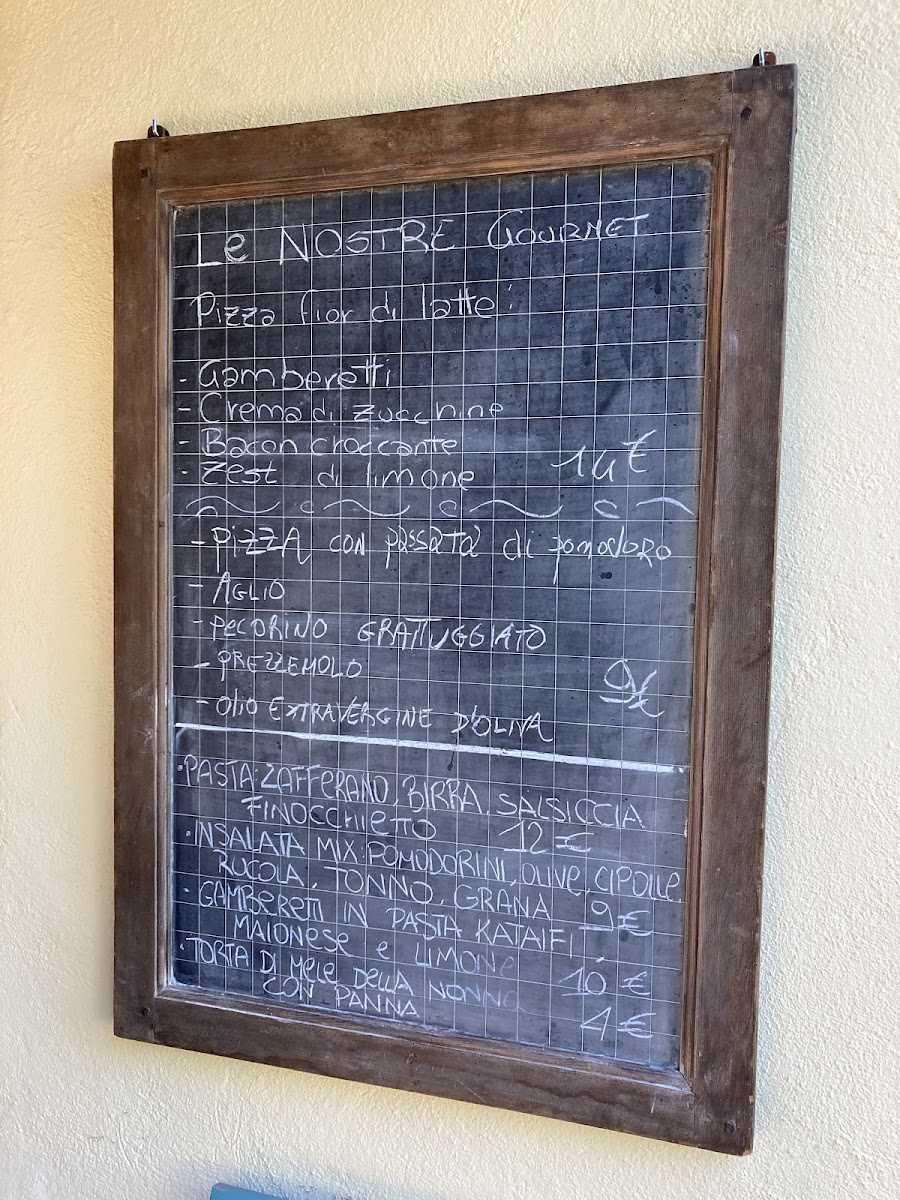 Le NOSTRE GOURMET
Pizza fior di latte:
- Gamberetti
- Crema di zucchine
- Bacon croccante
- Zest di limone 14€
- PIZZA con passata di pomodoro
- AGLIO
- PECORINO GRATTUGGIATO
- PREZZEMOLO
9€
- OLIO EXTRAVERGINE D'OLIVA
• PASTA: ZAFFERANO, BIRRA, SALSICCIA
FINOCCHIETTO 12 €
• INSALATA MIX: POMODORINI, OLIVE, CIPOLLE,
RUCOLA, TONNO, GRANA 9€
- GAMBERETI IN PASTA KATAIFI,
MAIONESE e LIMONE 10 €
• TORTA DI MELE DELLA NONNA
CON PANNA 4€